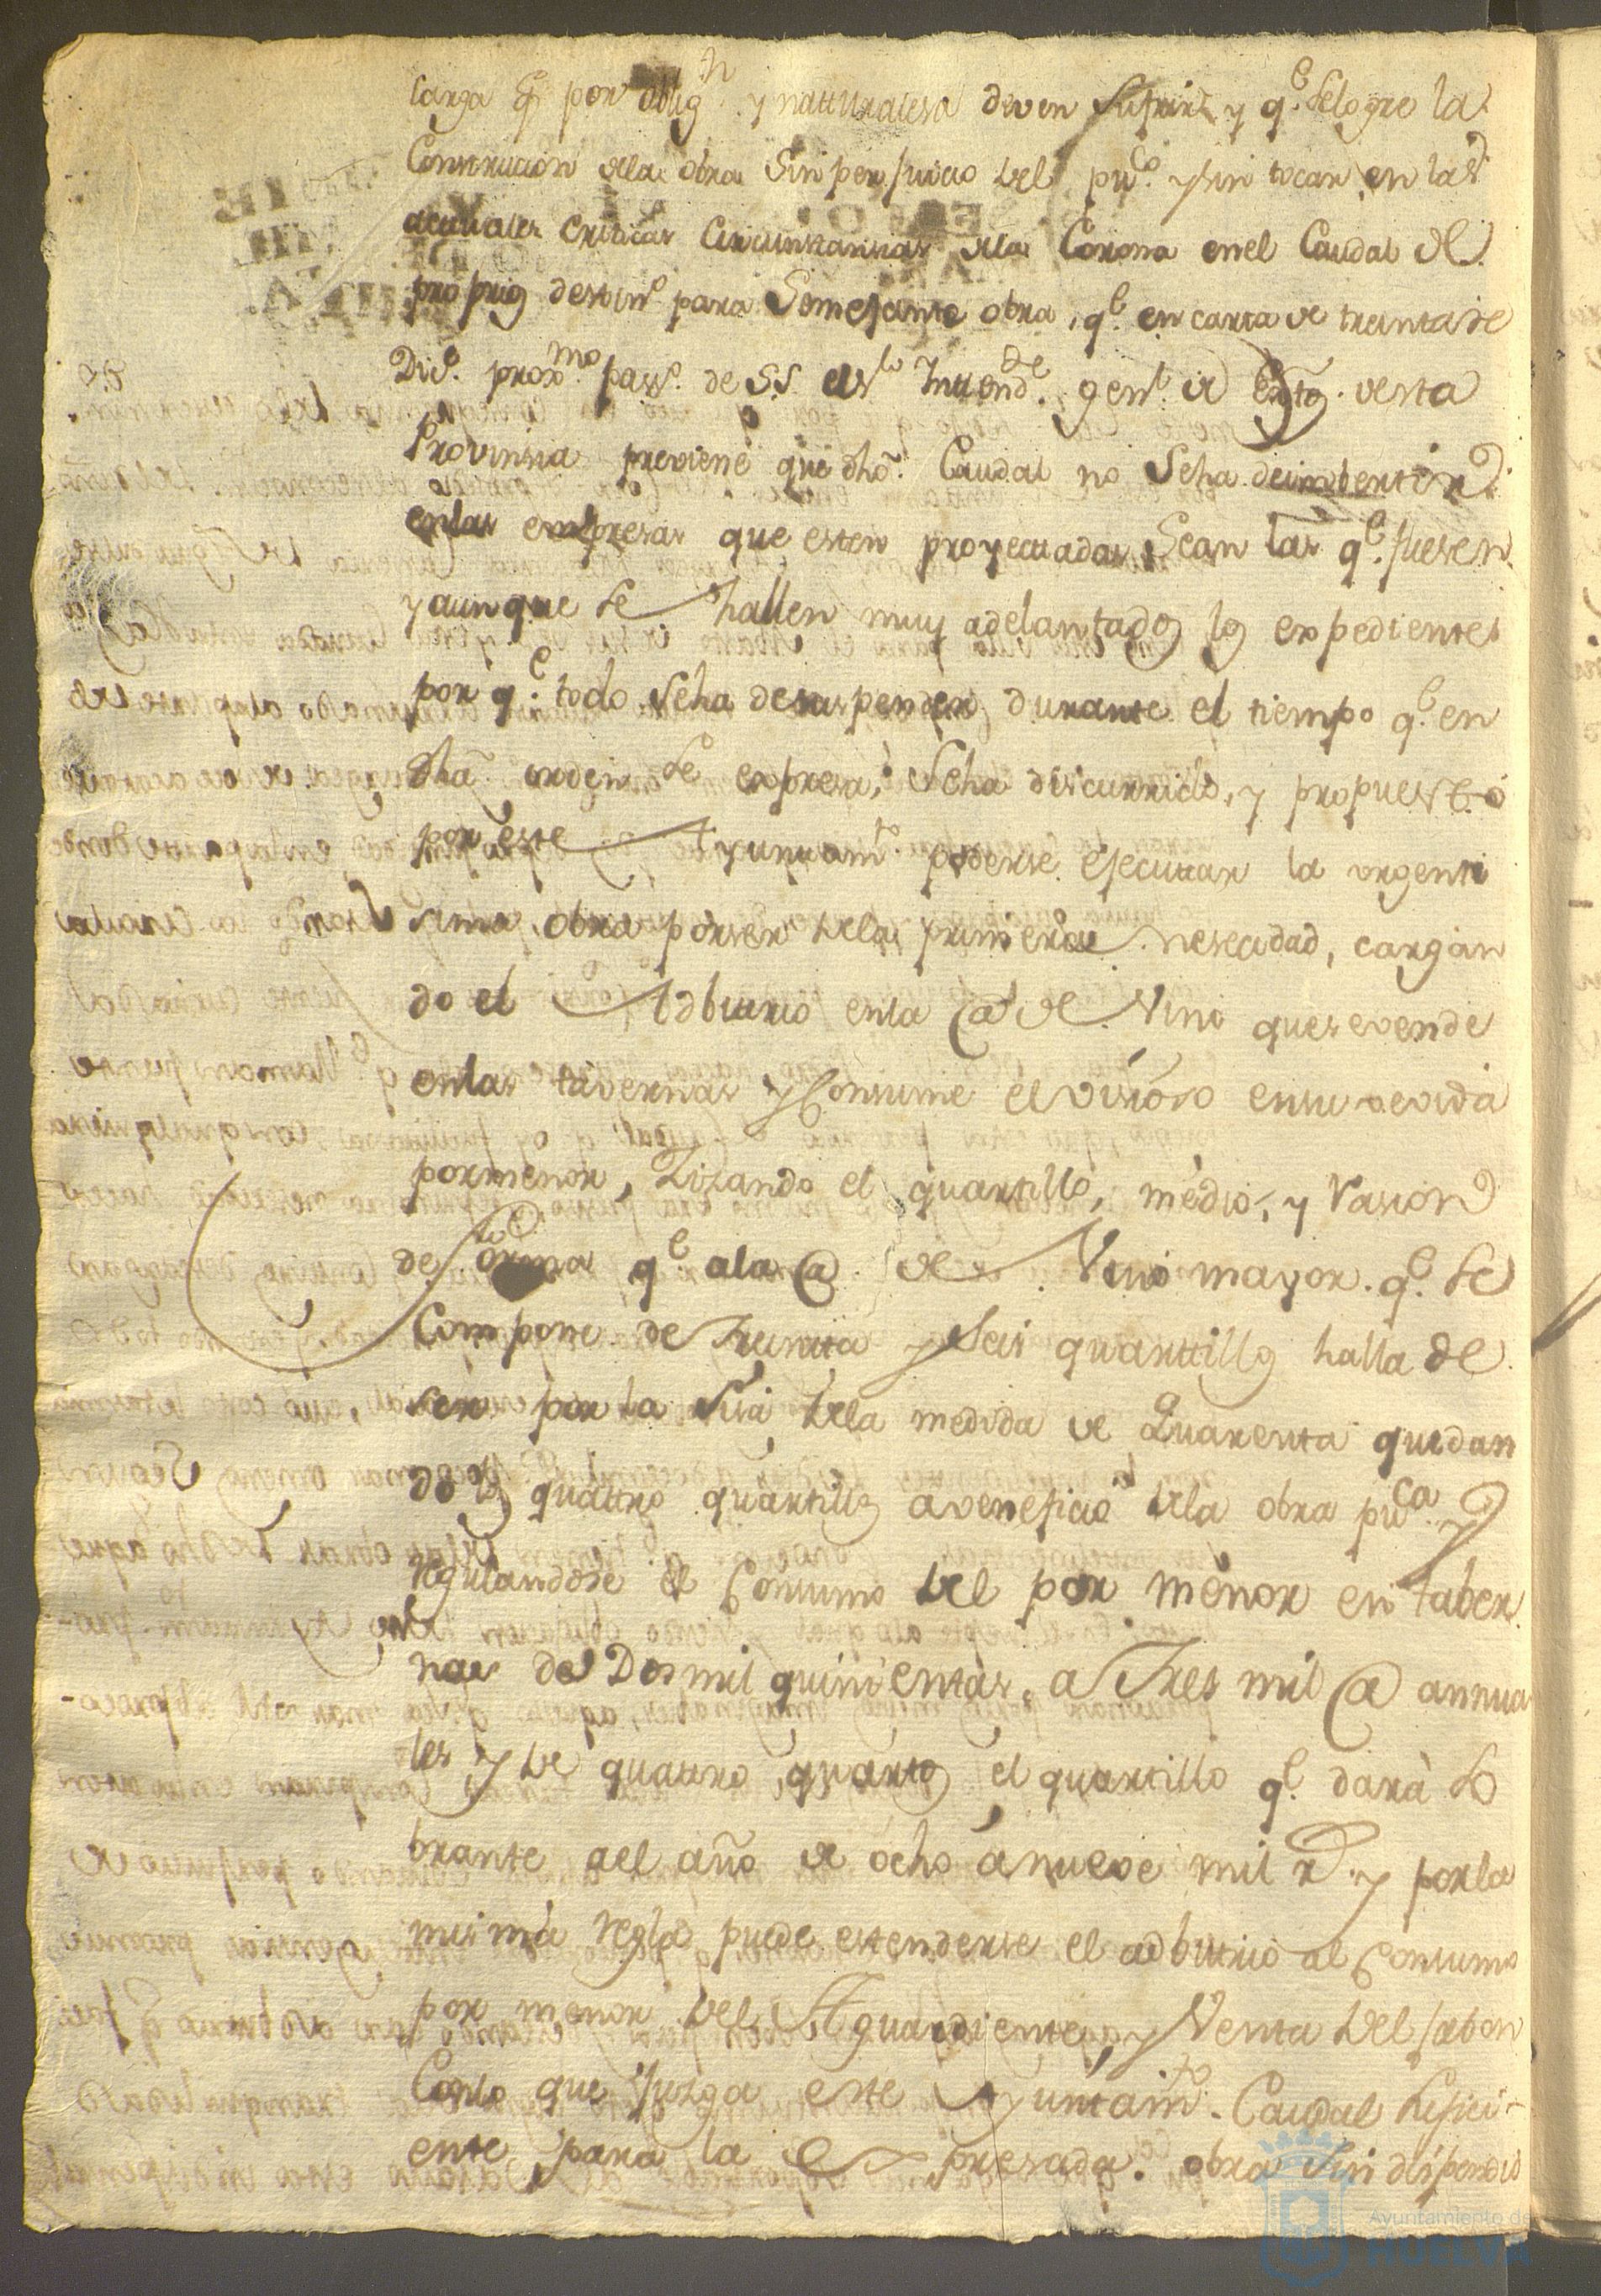 carga q.e por oblig.n y natturalesa deven sufrir y q.e selogre la
Construcion dela obra sin perjuicio del pu.co y sin tocar en las
actuales criticas circunstansias dela Corona enel Caudal de
proprios destin.o para semejante obra, q.e en carta de treinta de
Dic.e prox.mo pass.o de S.S. el s.r Intend.te gen.l de Extõ. desta
Provinsia previene que dhõ. Caudal no seha deimbertir
enlas empresas que esten proyectadas sean las q.e fuesen
y aunque se hallen muy adelantados los expedientes
por q.e todo seha desuspender durante el tiempo q.e en
dhã orden se expresa, seha discurrido, y propuesto
por este Ayuntam.to poderse ejecuttar la urgenti
sima obra porser dela primera nesecidad, cargan
do el Adbitrio enla @ de Vino quesevende
enlas tavernas y Consume elvisioso ensu vevida
pormenor, Zizando el quartillo, medio, y rasion
de forma q.e ala @ de Vino mayor q.e se
Compone de Treinta y seis quarttillos halla de
ser por la sisa dela medida de Quarenta quedan
do los quattro quartillos a veneficio dela obra pu.ca y
regulandose el Consumo del por menor en taber
nas de Dos mil quinientas, a Tres mil @ annua
les y de quattro quartos el quartillo q.e darà so
brante ael año de ocho a nueve mil r.s y porla
misma regla puede estenderse el adbitrio al Consumo
por menor del Aguardiente, y Venta del jabon
Conlo que Juzga este Ayuntam.to Caudal sufici-
ente para la expresada obra sin dispendio
Ayuntamiento de
HUELVA